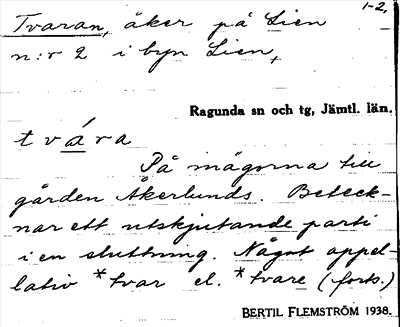 1-2.
Tvaran, åker på Lien
n:r 2 i byn Lien,
Ragunda sn och tg, Jämtl. län.
tvára
På mägorna till
gården Åkerlunds. Beteck-
nar ett utskjutande parti
i en sluttning. Något appel-
lativ *tvar el. *tvare (forts.)
BERTIL FLEMSTRÖM 1938.